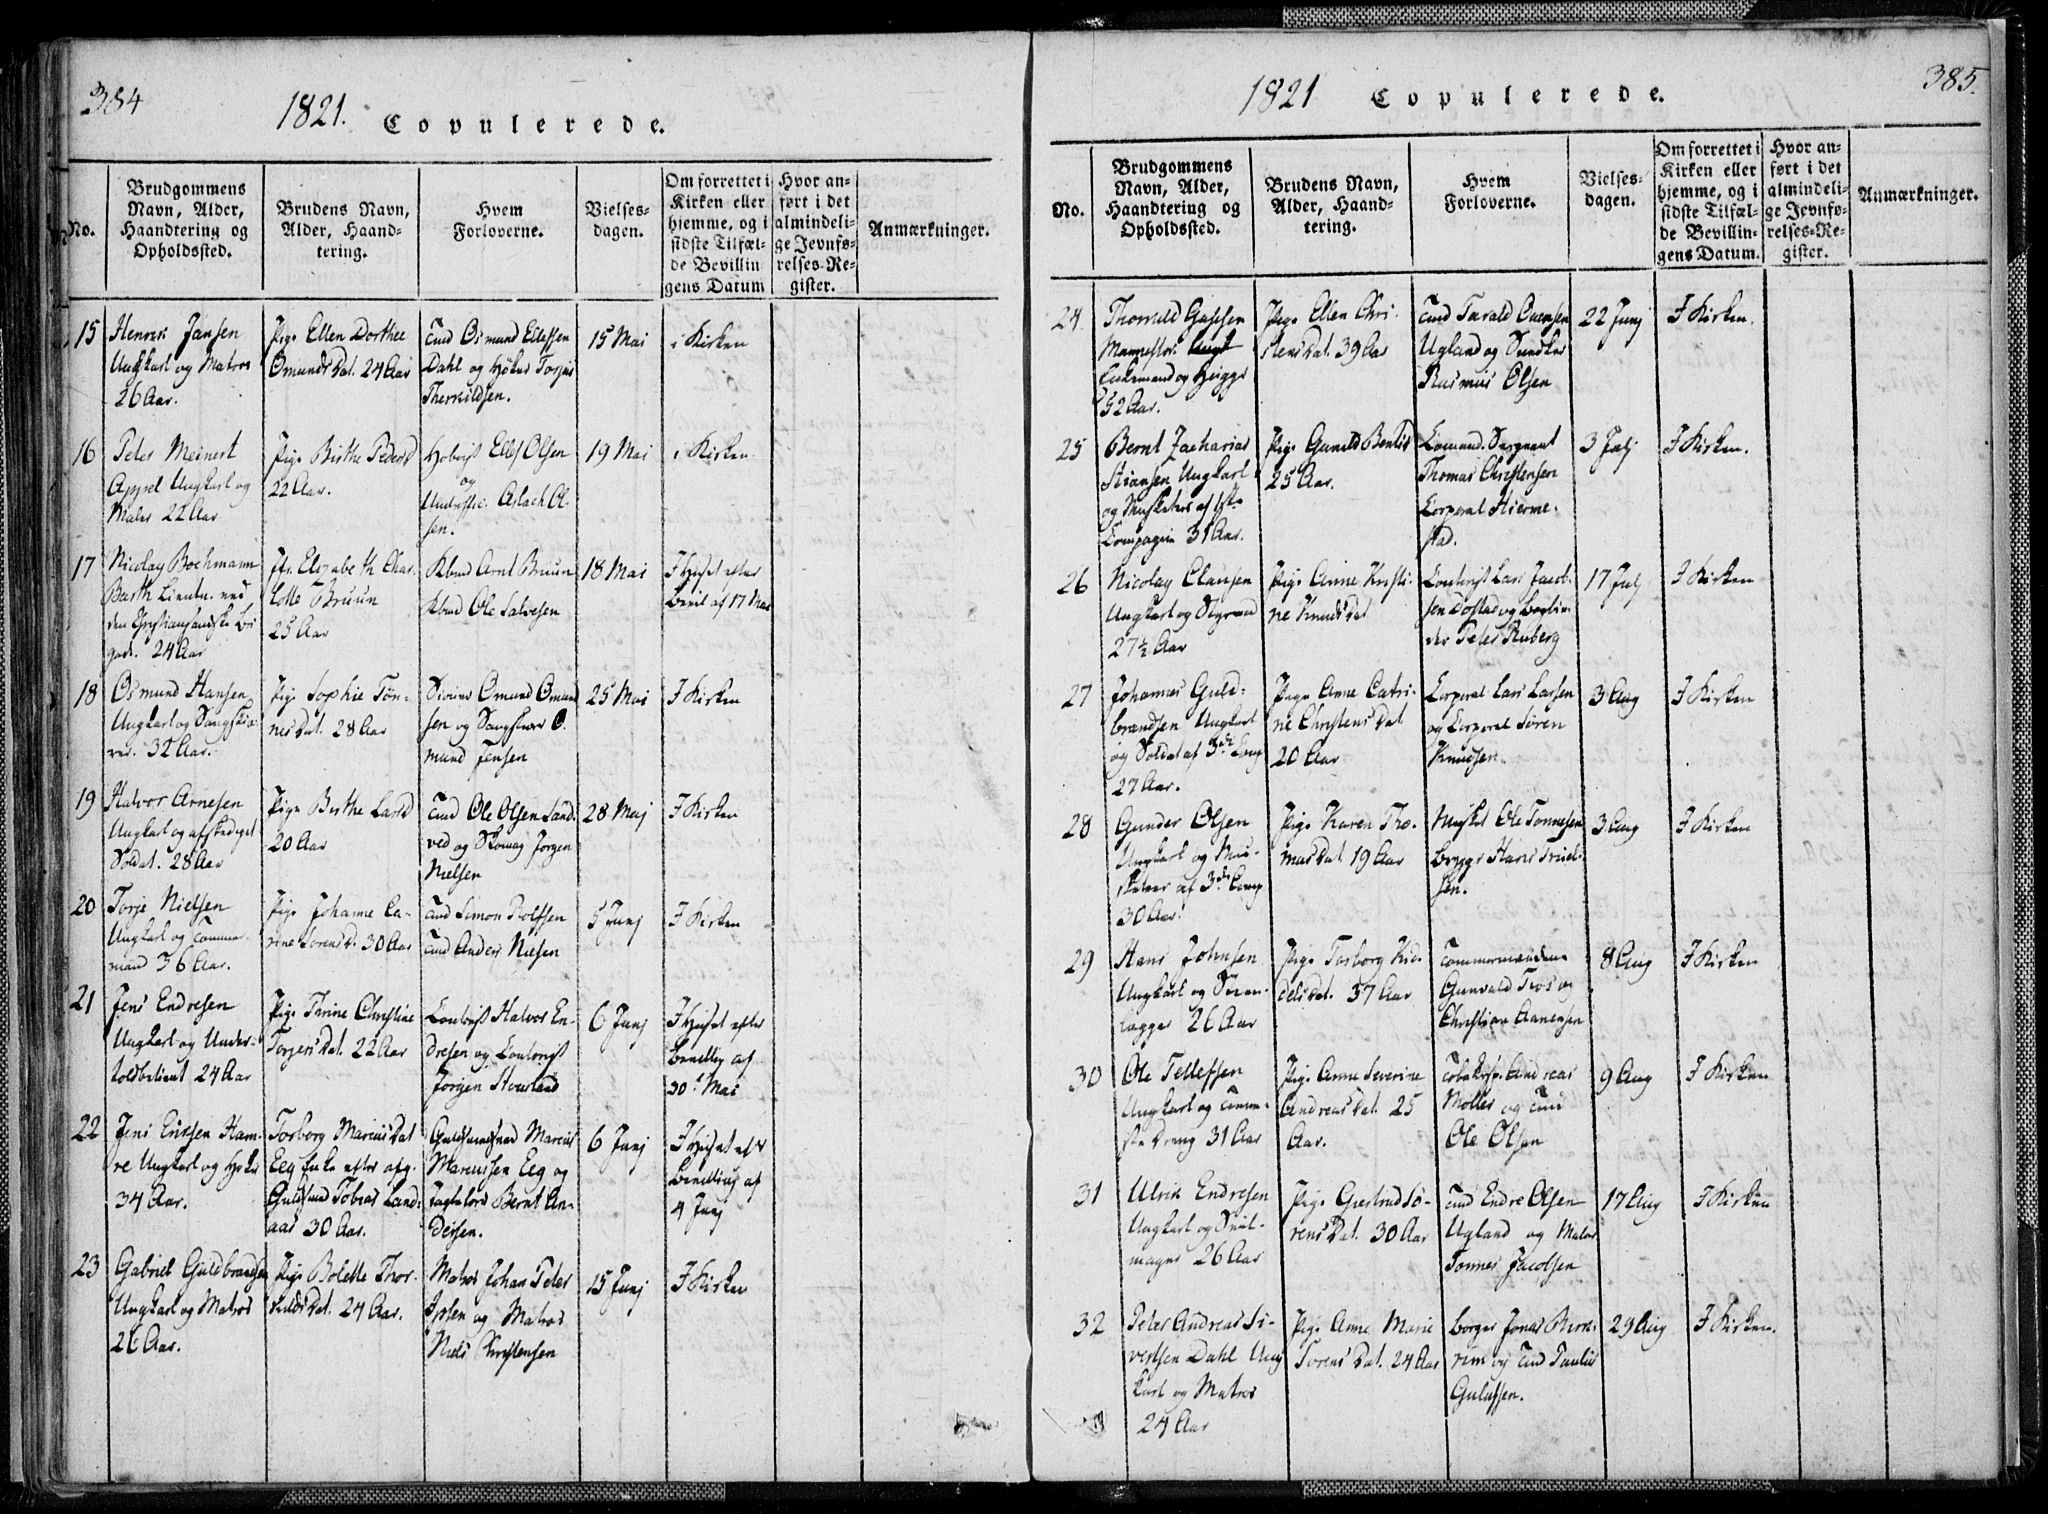 384
1821. Copulerede.
No.
Brudgommens
Navn, Alder,
Haandtering og
Opholdssted.
Brudens Navn,
Alder, Haand-
tering.
Hvem
Forloverne.
Vielses-
dagen.
Om forrettet i
Kirken eller
hjemme, og i
sidste Tilfæl-
de Bevillin
gens Datum
Hvor an-
ført i det
almindeli-
ge Jevnfø-
relses-Re-
gister.
Anmærkninger.
15
Henrik Jansen
Ungkarl og Matros
26 Aar.
Pige Ellen Dorthee
Omunds Dat. 24 Aar
Tmd Osmund Ellefsen
Dahl og Høker Torjus
Therkildsen.
15 Mai
i Kirken
16
Peter Meinert
Appel Ungkarl og
Maler 22 Aar
Pige Birthe Peders D
22 Aar.
Ellef Olsen
og
Aslach Ol-
sen.
19 Mai
i Kirken
17
Nicolay Bochmann
Barth Lieutn. ved
den Christiansandske Bri
gade. 24 Aar
Jfr. Elisabeth Char-
lotte Bruun
25 Aar
Kbmd Arnt Bruun
Kbmd Ole Salvesen
18 Mai
I Huset efter
Bevil af 17 Mai
18
Osmund Hansen
Ungkarl og Saugskiæ-
rer. 32 Aar.
Pige Sophie Tøn-
nes Dat. 28 Aar
Omund Omund
sen og Saugskiær O-
mund Jensen
25 Mai
I Kirken
19
Halvor Arnesen
Ungkarl og afskediget
Soldat. 28 Aar
Pige Birthe Lars D
20 Aar
Tmd Ole Olsen Sand-
ved og Skomag Jørgen
Nielsen
28 Maj
I Kirken
20
Torje Nielsen
Ungkarl og Tømmer-
mand 36 Aar.
Pige Johanne Ca-
rine Sørens D. 30 Aar
Tmd Simon Rolfsen
Tmd Anders Nielsen
5 Junj
I Kirken
21
Jens Endresen
Ungkarl og Under-
toldbetient 24 Aar
Pige Trine Christine
Torgers Dat. 22 Aar
Contorist Halvor En-
dresen og Contorist
Jørgen Stousland
6 Junj
I Huset efter
Bevilling af
30. Mai
22
Jens Ericsen Ham-
re Ungkarl og Høker
34 Aar.
Torborg Marcus Dat
Eeg Enke efter afg.
Guldsmed Tobias Land-
aas 30 Aar.
Guldsmed Marcus
Marcussen Eeg og
Bernt An-
dersen.
6 Junj
I Huset efter
Bevilling af
4 Junj
23
Gabriel Guldbrandsen
Ungkarl og Matros
26 Aar.
Pige Bolette Thor-
kilds Dat. 24 Aar.
Matros Johan Peter
Ipsen og Matros
Niels Christensen
15 Junj
I Kirken
385.
1821 Copulerede.
No.
Brudgommens
Navn, Alder,
Haandtering og
Opholdssted.
Brudens Navn,
Alder, Haand-
tering.
Hvem
Forloverne.
Vielses-
dagen.
Om forrettet i
Kirken eller
hjemme, og i
sidste Tilfæl-
de Bevillin-
gens Datum.
Hvor an-
ført i det
almindeli-
ge Jevnfø-
relses-Re-
gister.
Anmærkninger.
24
Enkemand og
52 Aar.
Pige Ellen Chri-
stens Dat. 39 Aar
Tmd Tarald
Ugland og
Rasmus Olsen
22 Junj
I Kirken.
25
Bernt Zacharias
Stiansen Ungkarl
og Musketeer af 1ste
Compagnie 31 Aar.
Pige Gunild Bents D
25 Aar.
Comand. Sergeant
Thomas Christensen
Corporal Hierme-
stad.
3 Julj
I Kirken.
26
Nicolay Clausen
Ungkarl og Styrmand
27½ Aar
Pige Anne Kirsti-
ne Knuds Dat
Contorist Lars Jacob-
sen og Bogbin-
der Peter Ruberg
17 Julj
I Kirken
27
Johannes Guld-
brandsen Ungkarl
og Soldat af 3die Comp
27 Aar.
Pige Ane Catri-
ne Christens Dat
20 Aar
Corporal Lars Larsen
og Corporal Søren
Knudsen.
3 Aug
I Kirken
28
Gunder Olsen
Ungkarl og Mu-
sketeer af 3die Comp
30 Aar.
Pige Karen Tho-
mas Dat. 19 Aar
Musket Ole Tønnesen
Brygger Hans Truel-
sen.
3 Aug
I Kirken
29
Hans Johnsen
Ungkarl og Steen-
lægger 26 Aar
Pige Torborg Kid-
dels Dat. 37 Aar
Tømmermændene
Gunvald Trøs og
Christian Aanensen
8 Aug
I Kirken
30
Ole Tellefsen
Ungkarl og
Dreng 31 Aar
Pige Anne Severine
Andreas Dat. 25
Aar.
Andreas
Møller og Tmd
Ole Olsen
9 Aug
I Kirken
31
Ulrik Endresen
Ungkarl og Seil-
mager 26 Aar
Pige Giertrud Sø-
rens Dat. 30 Aar
Tmd Endre Olsen
Ugland og Matros
Tønnes Jacobsen
17 Aug
I Kirken
32
Peter Andreas Si-
vertsen Dahl Ung
karl og Matros
24 Aar
Pige Anne Marie
Sørens Dat. 24 Aar
Borger Jonas Birk-
rem og Tmd Paulus
Gulufsen.
29 Aug
I Kirken.